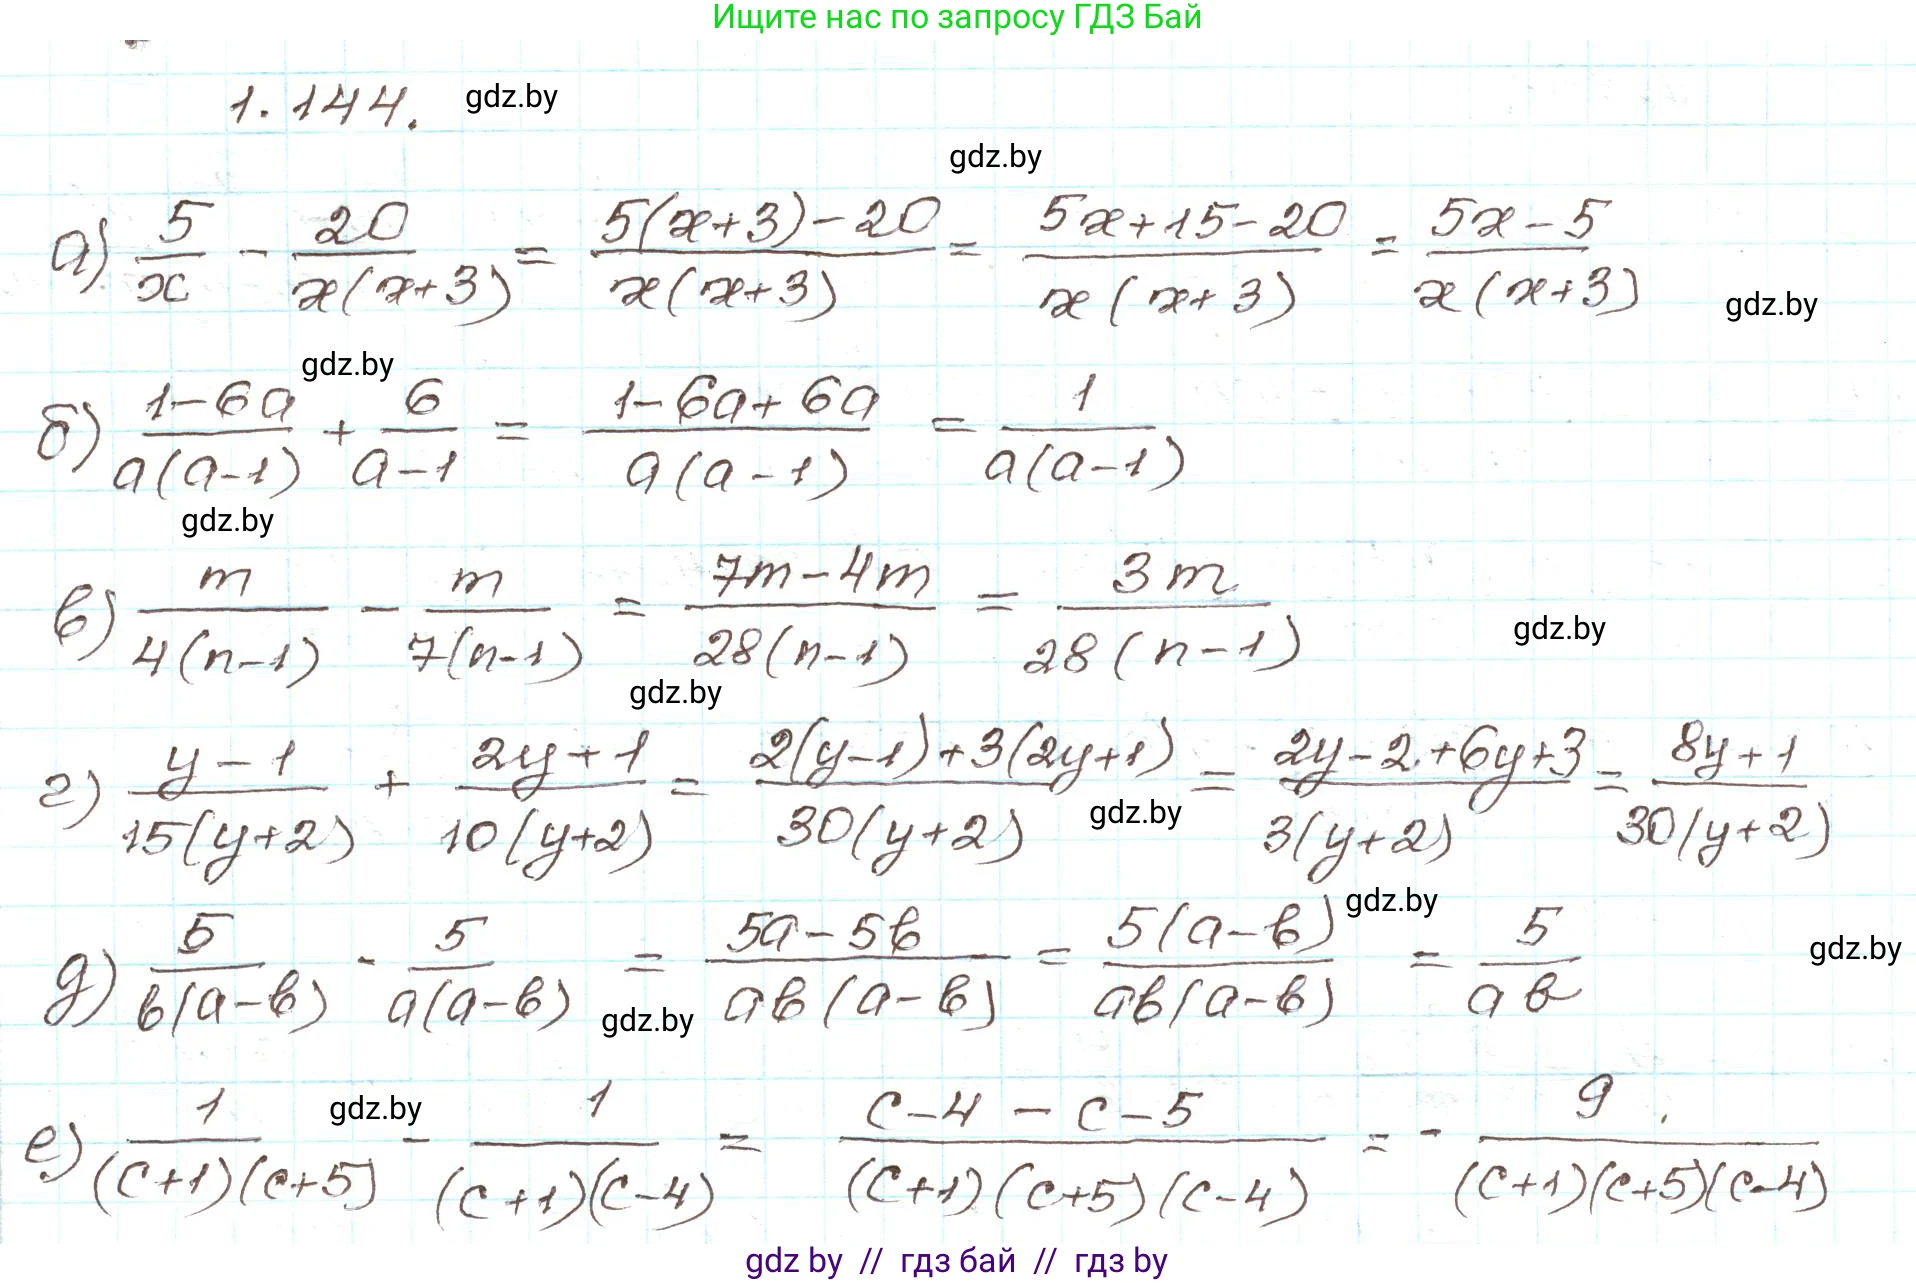 Ищите нас по запросу ГДЗ Бай
1.144. gdz.by
gdz.by
а) 5/x - 20/(x(x+3)) = (5(x+3)-20)/(x(x+3)) = (5x+15-20)/(x(x+3)) = (5x-5)/(x(x+3)) gdz.by
gdz.by
б) (1-6a)/(a(a-1)) + 6/(a-1) = (1-6a+6a)/(a(a-1)) = 1/(a(a-1))
gdz.by
в) m/(4(n-1)) - m/(7(n-1)) = (7m-4m)/(28(n-1)) = 3m/(28(n-1)) gdz.by
gdz.by
г) (y-1)/(15(y+2)) + (2y+1)/(10(y+2)) = (2(y-1)+3(2y+1))/(30(y+2)) = (2y-2+6y+3)/(3(y+2)) = (8y+1)/(30(y+2))
gdz.by
gdz.by
д) 5/(b(a-b)) - 5/(a(a-b)) = (5a-5b)/(ab(a-b)) = (5(a-b))/(ab(a-b)) = 5/(ab) gdz.by
gdz.by
е) 1/((c+1)(c+5)) - 1/((c+1)(c-4)) = (c-4-c-5)/((c+1)(c+5)(c-4)) = - 9/((c+1)(c+5)(c-4))
gdz.by
gdz.by // гдз бай // гдз by